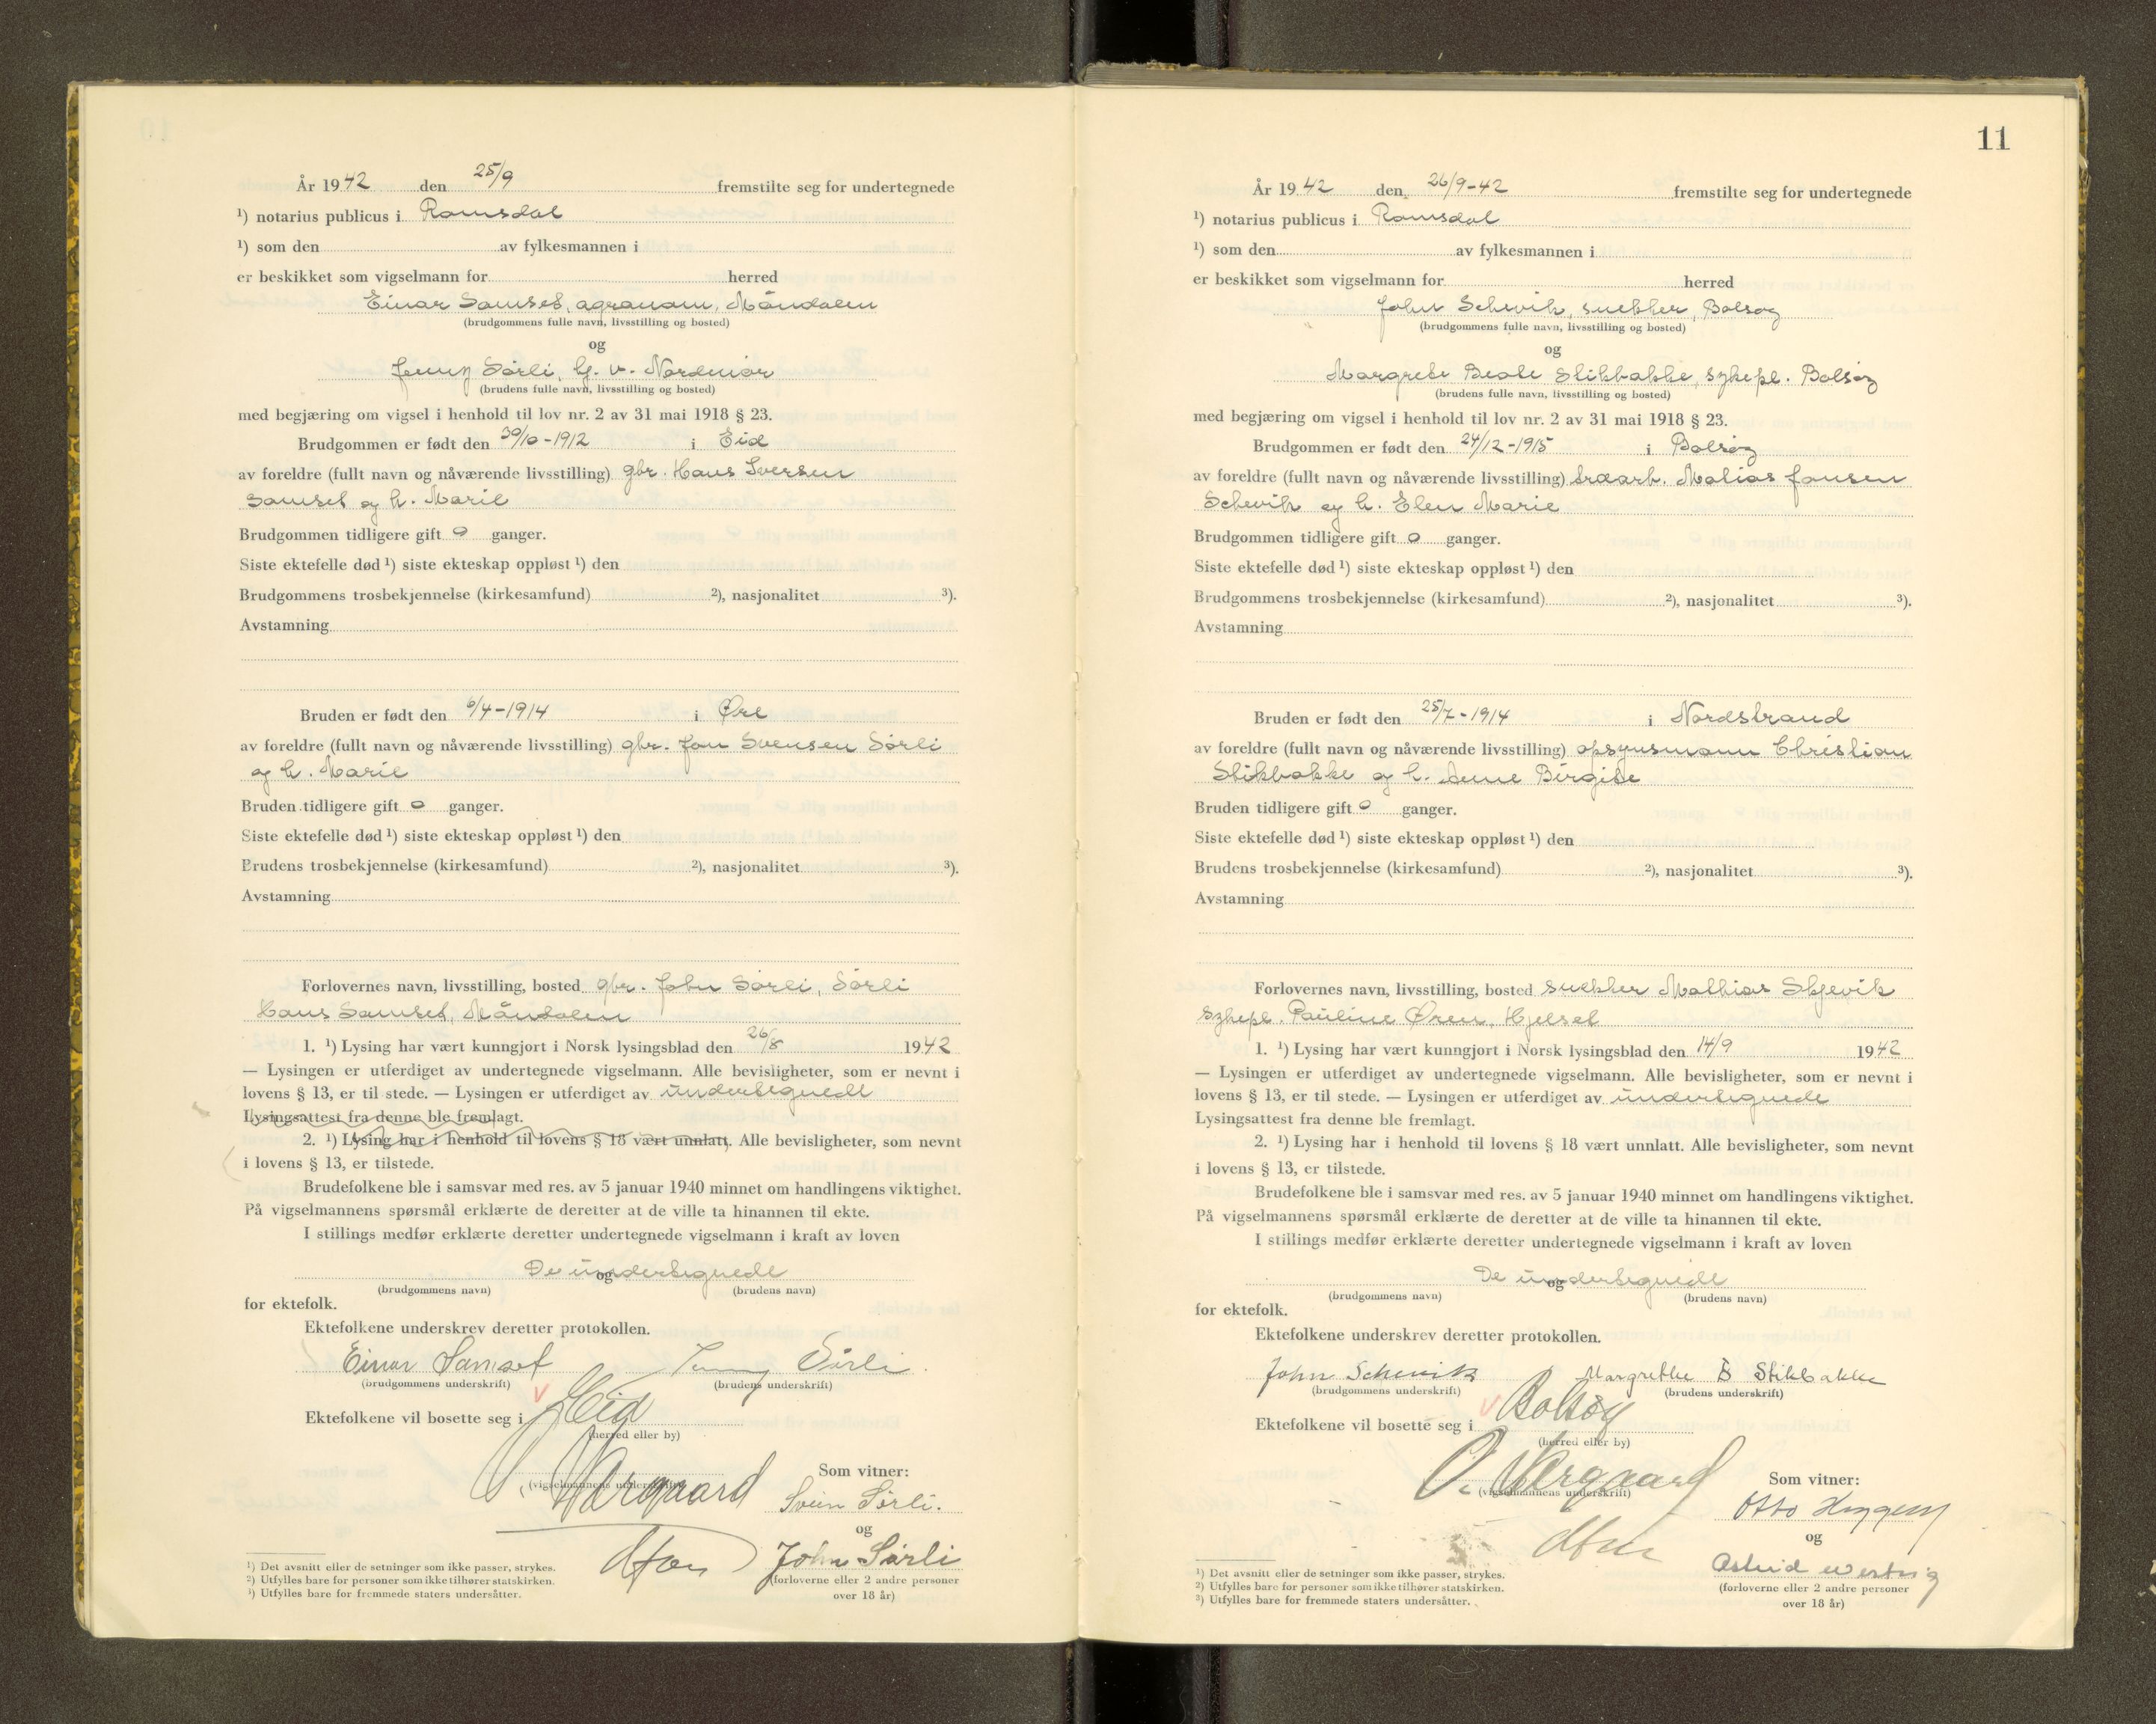 År 1942 den 25/9 fremstilte seg for undertegnede
¹) notarius publicus i Romsdal
¹) som den av fylkesmannen i
er beskikket som vigselmann for herred
Einar Samset, agronom, Måndalen
(brudgommens fulle navn, livsstilling og bosted)
og
Jenny Sørli, h. v. Nordmør
(brudens fulle navn, livsstilling og bosted)
med begjæring om vigsel i henhold til lov nr. 2 av 31 mai 1918 § 23.
Brudgommen er født den 30/10-1912 i Eid
av foreldre (fullt navn og nåværende livsstilling) gbr. Hans Iversen
Samset og h. Marie
Brudgommen tidligere gift 0 ganger.
Siste ektefelle død ¹) siste ekteskap oppløst ¹) den
Brudgommens trosbekjennelse (kirkesamfund) ²), nasjonalitet ³).
Avstamning
Bruden er født den 6/4-1914 i Øre
av foreldre (fullt navn og nåværende livsstilling) gbr. Jon Svensen Sørli
og h. Marie
Bruden tidligere gift 0 ganger.
Siste ektefelle død ¹) siste ekteskap oppløst ¹) den
Brudens trosbekjennelse (kirkesamfund) ²), nasjonalitet ³).
Avstamning
Forlovernes navn, livsstilling, bosted gbr. John Sørli, Sørli
Hans Samset, Måndalen
1. ¹) Lysing har vært kunngjort i Norsk lysingsblad den 26/8 1942
— Lysingen er utferdiget av undertegnede vigselmann. Alle bevisligheter, som er nevnt i
lovens § 13, er til stede. — Lysingen er utferdiget av undertegnede
Lysingsattest fra denne ble fremlagt.
2. ¹) Lysing har i henhold til lovens § 18 vært unnlatt. Alle bevisligheter, som nevnt
i lovens § 13, er tilstede.
Brudefolkene ble i samsvar med res. av 5 januar 1940 minnet om handlingens viktighet.
På vigselmannens spørsmål erklærte de deretter at de ville ta hinannen til ekte.
I stillings medfør erklærte deretter undertegnede vigselmann i kraft av loven
De undertegnede
og
(brudgommens navn) (brudens navn)
for ektefolk.
Ektefolkene underskrev deretter protokollen.
Einar Samset Jenny Sørli
(brudgommens underskrift) (brudens underskrift)
Ektefolkene vil bosette seg i Eid
(herred eller by)
Som vitner:
(vigselmannens underskrift)
Svein Sørli.
og
John Sørli
(forloverne eller 2 andre personer
over 18 år)
¹) Det avsnitt eller de setninger som ikke passer, strykes.
²) Utfylles bare for personer som ikke tilhører statskirken.
³) Utfylles bare for fremmede staters undersåtter.
11
År 1942 den 26/9-42 fremstilte seg for undertegnede
¹) notarius publicus i Romsdal
¹) som den av fylkesmannen i
er beskikket som vigselmann for herred
John Schevik, snekker, Bolsøy
(brudgommens fulle navn, livsstilling og bosted)
og
Margrete Beate Stikbakke, sykepl. Bolsøy
(brudens fulle navn, livsstilling og bosted)
med begjæring om vigsel i henhold til lov nr. 2 av 31 mai 1918 § 23.
Brudgommen er født den 24/12-1915 i Bolsøy
av foreldre (fullt navn og nåværende livsstilling) trearb. Matias Jansen
Schevik og h. Elen Marie
Brudgommen tidligere gift 0 ganger.
Siste ektefelle død ¹) siste ekteskap oppløst ¹) den
Brudgommens trosbekjennelse (kirkesamfund) ²), nasjonalitet ³).
Avstamning
Bruden er født den 25/7-1914 i Nordstrand
av foreldre (fullt navn og nåværende livsstilling) opsynsmann Christian
Stikbakke og h. Anne Birgite
Bruden tidligere gift 0 ganger.
Siste ektefelle død ¹) siste ekteskap oppløst ¹) den
Brudens trosbekjennelse (kirkesamfund) ²), nasjonalitet ³).
Avstamning
Forlovernes navn, livsstilling, bosted snekker Mathias Skjevik
sykepl. Pauline Øren, Hjelset
1. ¹) Lysing har vært kunngjort i Norsk lysingsblad den 14/9 1942
— Lysingen er utferdiget av undertegnede vigselmann. Alle bevisligheter, som er nevnt i
lovens § 13, er til stede. — Lysingen er utferdiget av undertegnede
Lysingsattest fra denne ble fremlagt.
2. ¹) Lysing har i henhold til lovens § 18 vært unnlatt. Alle bevisligheter, som nevnt
i lovens § 13, er tilstede.
Brudefolkene ble i samsvar med res. av 5 januar 1940 minnet om handlingens viktighet.
På vigselmannens spørsmål erklærte de deretter at de ville ta hinannen til ekte.
I stillings medfør erklærte deretter undertegnede vigselmann i kraft av loven
De undertegnede
og
(brudgommens navn) (brudens navn)
for ektefolk.
Ektefolkene underskrev deretter protokollen.
John Schevik Margrethe B Stikbakke
(brudgommens underskrift) (brudens underskrift)
Ektefolkene vil bosette seg i Bolsøy
(herred eller by)
Som vitner:
(vigselmannens underskrift)
Otto
og
Astrid
(forloverne eller 2 andre personer
over 18 år)
¹) Det avsnitt eller de setninger som ikke passer, strykes.
²) Utfylles bare for personer som ikke tilhører statskirken.
³) Utfylles bare for fremmede staters undersåtter.